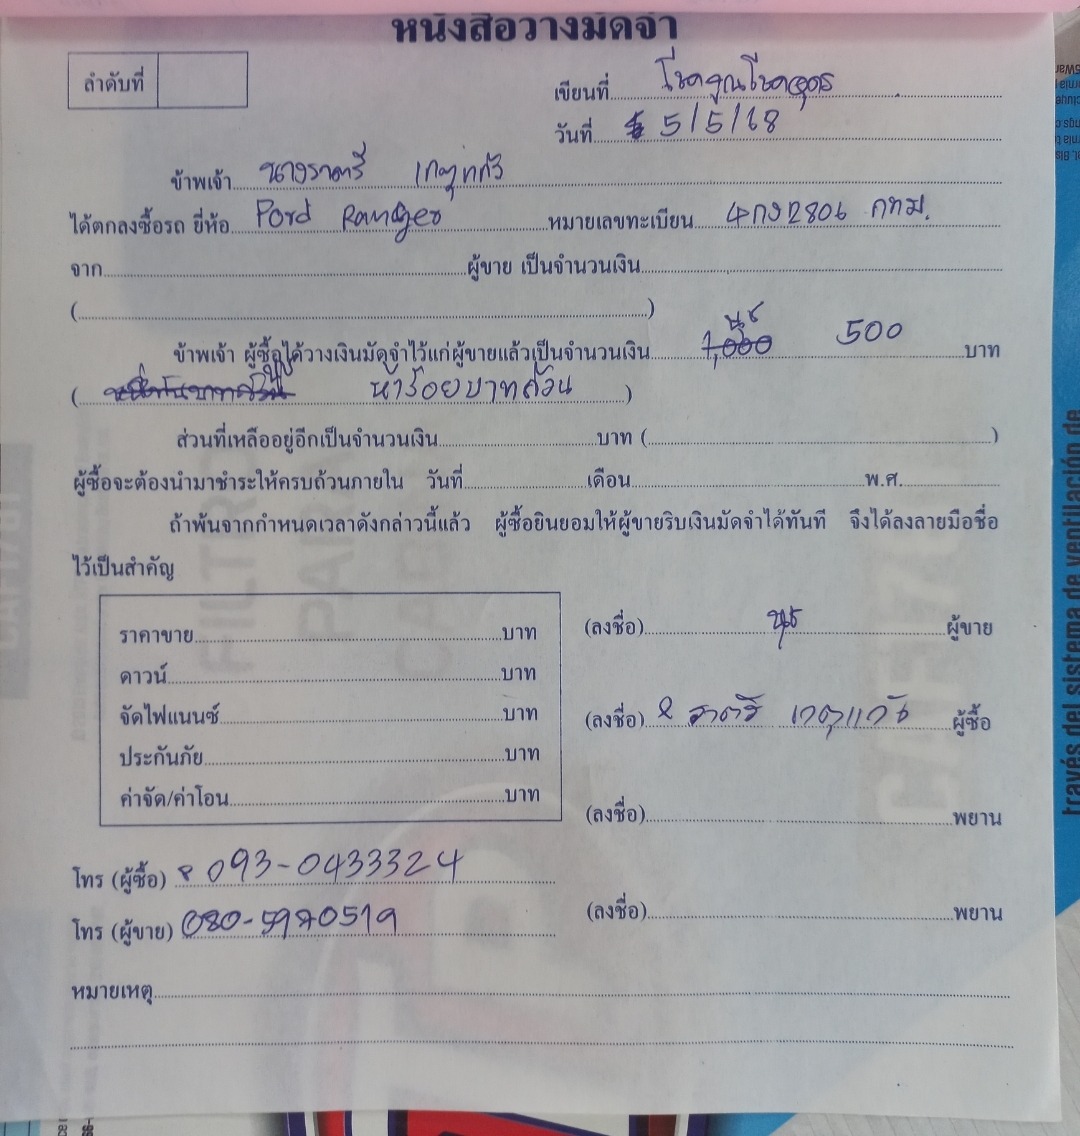 หนังสือวางมัดจำ
ลำดับที่
เขียนที่ โชคคูณโชคอุดร
วันที่ 5/5/68
ข้าพเจ้า นางราตรี เกตุแก้ว
ได้ตกลงซื้อรถ ยี่ห้อ Ford Ranger หมายเลขทะเบียน 4กง2806 กทม.
จาก ผู้ขาย เป็นจำนวนเงิน
( )
ข้าพเจ้า ผู้ซื้อได้วางเงินมัดจำไว้แก่ผู้ขายแล้วเป็นจำนวนเงิน 1,000 500 บาท
( หนึ่งพันบาทถ้วน ห้าร้อยบาทถ้วน )
ส่วนที่เหลืออยู่อีกเป็นจำนวนเงิน บาท ( )
ผู้ซื้อจะต้องนำมาชำระให้ครบถ้วนภายใน วันที่ เดือน พ.ศ.
ถ้าพ้นจากกำหนดเวลาดังกล่าวนี้แล้ว ผู้ซื้อยินยอมให้ผู้ขายริบเงินมัดจำได้ทันที จึงได้ลงลายมือชื่อ
ไว้เป็นสำคัญ
ราคาขาย บาท
ดาวน์ บาท
จัดไฟแนนซ์ บาท
ประกันภัย บาท
ค่าจัด/ค่าโอน บาท
(ลงชื่อ) นุช ผู้ขาย
(ลงชื่อ) ราตรี เกตุแก้ว ผู้ซื้อ
(ลงชื่อ) พยาน
(ลงชื่อ) พยาน
โทร (ผู้ซื้อ) 093-0433324
โทร (ผู้ขาย) 080-5970519
หมายเหตุ
través del sistema de ventilación de